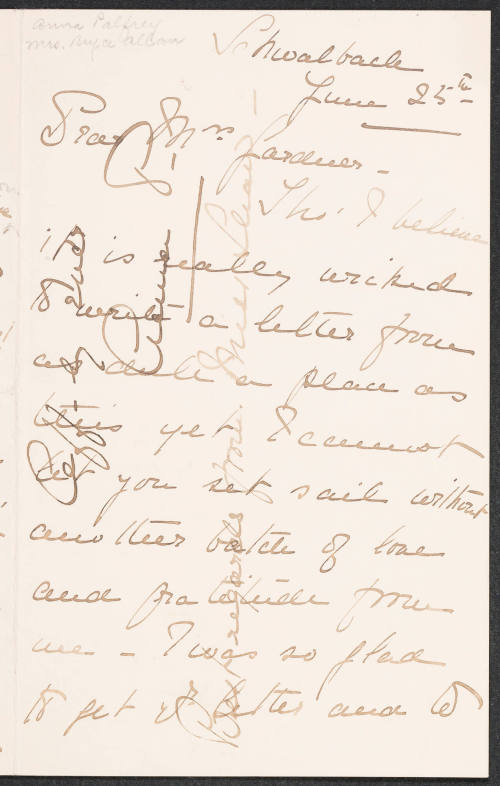 Anna Palfrey
Mrs.
Schwalbach
June 25th
Dear Mrs. Gardner -
Tho' I believe
it is really wicked
to write a letter from
as dull a place as
this yet I cannot
let you set sail without
another batch of love
and gratitude from
me - I was so glad
to get yr letter and to
Best regards from Miss